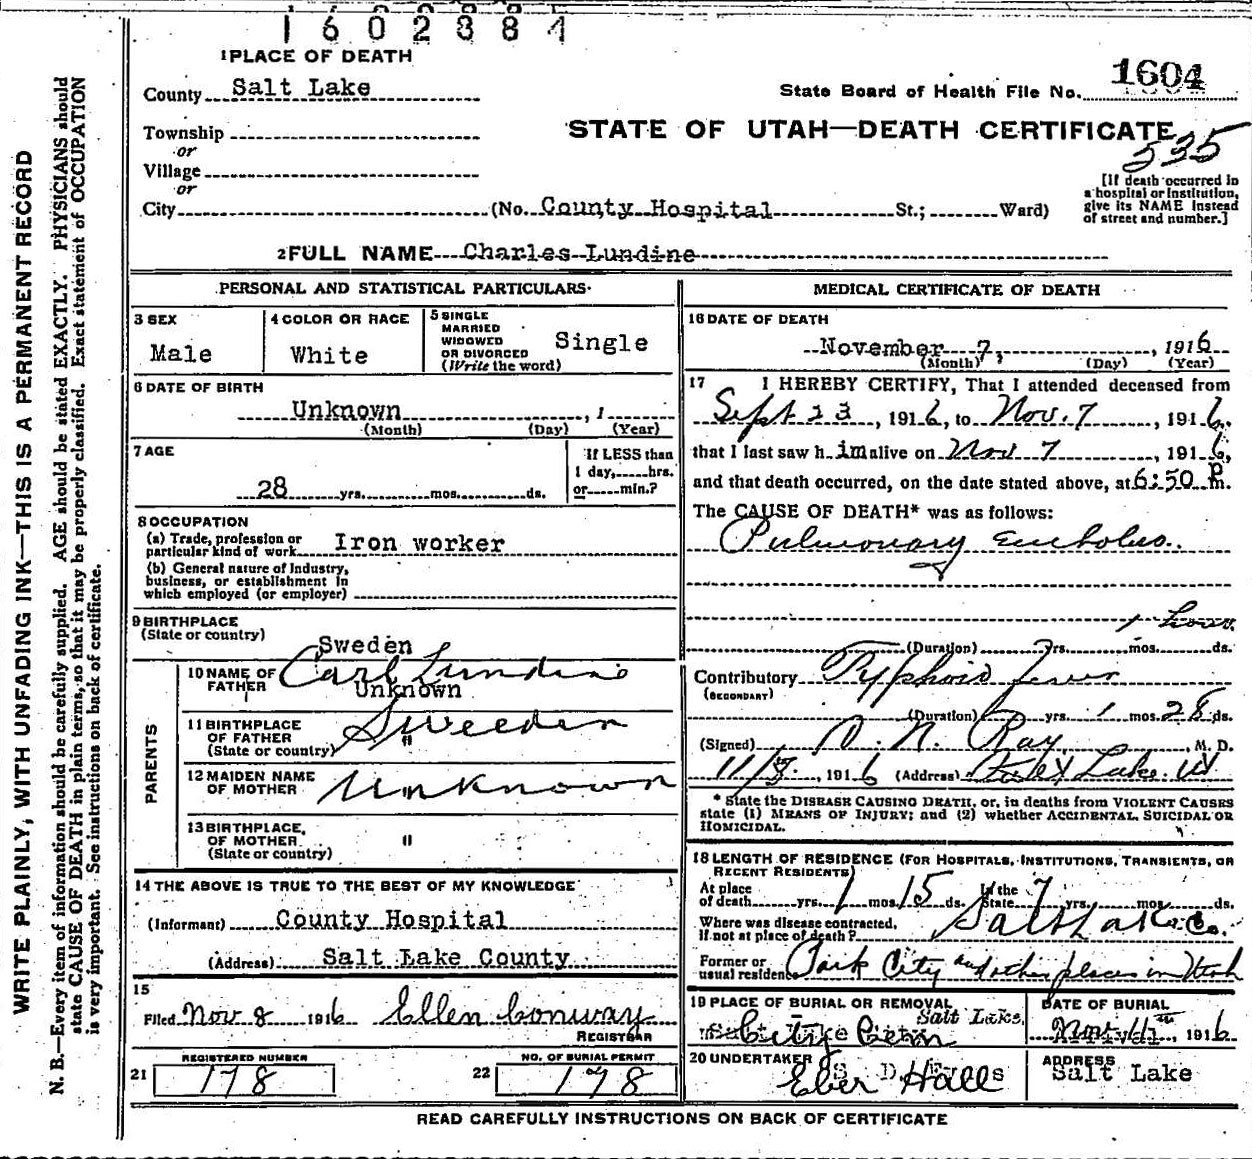 1602884
1 PLACE OF DEATH
County Salt Lake
State Board of Health File No. 1604
Township
or
STATE OF UTAH—DEATH CERTIFICATE
535
Village
or
City (No. County Hospital St.; Ward)
[If death occurred in a hospital or institution, give its NAME instead of street and number.]
2 FULL NAME Charles Lundine
PERSONAL AND STATISTICAL PARTICULARS
3 SEX
Male
4 COLOR OR RACE
White
5 SINGLE
MARRIED
WIDOWED
OR DIVORCED
(Write the word)
Single
6 DATE OF BIRTH
Unknown , 1
(Month) (Day) (Year)
7 AGE
28 yrs. mos. ds.
If LESS than
1 day, hrs.
or min.?
8 OCCUPATION
(a) Trade, profession or
particular kind of work Iron worker
(b) General nature of Industry,
business, or establishment in
which employed (or employer)
9 BIRTHPLACE
(State or country)
Sweden
PARENTS
10 NAME OF
FATHER
Carl Lundine
Unknown
11 BIRTHPLACE
OF FATHER
(State or country)
Sweeden
"
12 MAIDEN NAME
OF MOTHER
Unknown
13 BIRTHPLACE
OF MOTHER
(State or country)
"
14 THE ABOVE IS TRUE TO THE BEST OF MY KNOWLEDGE
(Informant) County Hospital
(Address) Salt Lake County
15
Filed Nov 8 1916 Ellen Conway
REGISTRAR
REGISTERED NUMBER
21 178
NO. OF BURIAL PERMIT
22 178
MEDICAL CERTIFICATE OF DEATH
16 DATE OF DEATH
November 7, , 1916
(Month) (Day) (Year)
17 I HEREBY CERTIFY, That I attended deceased from
Sept 23 , 1916, to Nov. 7 , 1916,
that I last saw h im alive on Nov 7 , 1916,
and that death occurred, on the date stated above, at 6:50 P m.
The CAUSE OF DEATH* was as follows:
Pulmonary Embolus.
1 hour
(Duration) yrs. mos. ds.
Contributory Typhoid fever
(SECONDARY)
(Duration) yrs. 1 mos. 28 ds.
(Signed) Ray , M. D.
11/8 , 1916 (Address) Salt Lake. Ut
* State the DISEASE CAUSING DEATH, or, in deaths from VIOLENT CAUSES
state (1) MEANS OF INJURY; and (2) whether ACCIDENTAL, SUICIDAL OR
HOMICIDAL.
18 LENGTH OF RESIDENCE (FOR HOSPITALS, INSTITUTIONS, TRANSIENTS, OR
RECENT RESIDENTS)
At place
of death yrs. 1 mos. 15 ds. In the
State 7 yrs. mos. ds.
Where was disease contracted,
If not at place of death? Salt Lake Co.
Former or
usual residence Park City and other places in Utah
19 PLACE OF BURIAL OR REMOVAL
Salt Lake
City Cem
DATE OF BURIAL
Nov 11th , 1916
20 UNDERTAKER
Eber Hall
ADDRESS
Salt Lake
READ CAREFULLY INSTRUCTIONS ON BACK OF CERTIFICATE
WRITE PLAINLY, WITH UNFADING INK—THIS IS A PERMANENT RECORD
N. B.—Every item of information should be carefully supplied. AGE should be stated EXACTLY. PHYSICIANS should
state CAUSE OF DEATH in plain terms, so that it may be properly classified. Exact statement of OCCUPATION
is very important. See instructions on back of certificate.